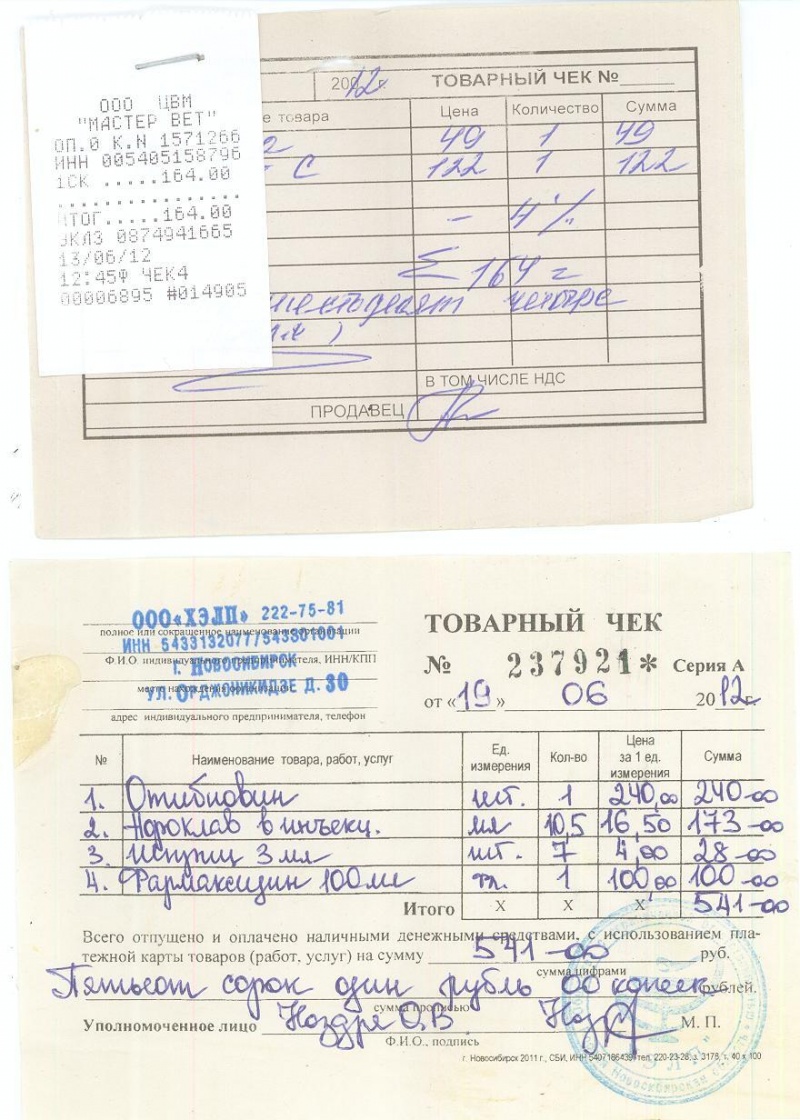 ООО ЦВМ
"МАСТЕР ВЕТ"
ОП.0 К.N 1571266
ИНН 005405158796
1СК .....164.00
ИТОГ.....164.00
ЭКЛЗ 0874941665
13/06/12
12:45Ф ЧЕК4
00006895 #014905
2012 г. ТОВАРНЫЙ ЧЕК №
е товара Цена Количество Сумма
2 49 1 49
С 122 1 122
- 4%
Σ 164 г
шестьдесят четыре
В ТОМ ЧИСЛЕ НДС
ПРОДАВЕЦ
ООО «ХЭЛП» 222-75-81
полное или сокращенное наименование организации
ИНН 5433132077/543301001
Ф.И.О. индивидуального предпринимателя, ИНН/КПП
г. Новосибирск
место нахождения организации
ул. Орджоникидзе д. 30
адрес индивидуального предпринимателя, телефон
ТОВАРНЫЙ ЧЕК
№ 237921* Серия А
от «19» 06 2012 г.
№ Наименование товара, работ, услуг Ед. измерения Кол-во Цена за 1 ед. измерения Сумма
1. Отибиовин шт. 1 240,00 240-00
2. Нороклав в инъекц. мл 10,5 16,50 173-00
3. Шприц 3 мл шт. 7 4,00 28-00
4. Фармаксидин 100 мл фл. 1 100 00 100-00
Итого X X X 541-00
Всего отпущено и оплачено наличными денежными средствами, с использованием пла-
тежной карты товаров (работ, услуг) на сумму 541-00 руб.
сумма цифрами
Пятьсот сорок один рубль 00 копеек рублей.
сумма прописью
Уполномоченное лицо Ноздря О.В. М. П.
Ф.И.О., подпись
г. Новосибирск 2011 г., СБИ, ИНН 5407186439, тел. 220-23-28, з. 3178, т. 40 х 100